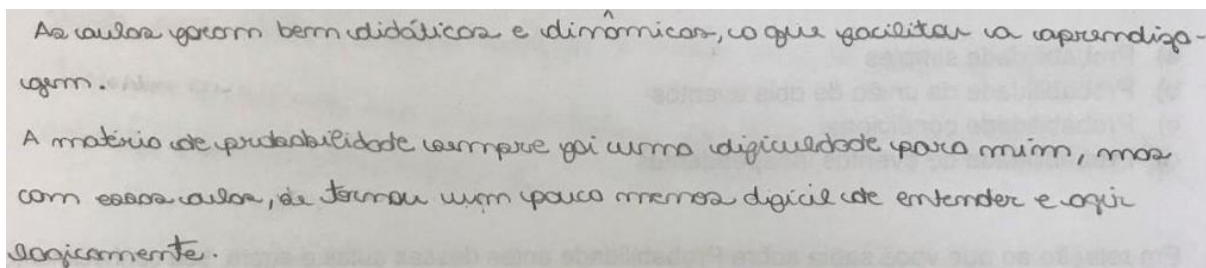 As aulas foram bem didáticas e dinâmicas, o que facilitou a aprendiza-
gem.
A matéria de probabilidade sempre foi uma dificuldade para mim, mas
com essas aulas, se tornou um pouco menos difícil de entender e agir
logicamente.